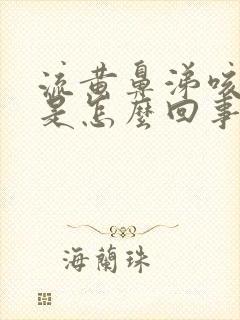 流黄鼻涕咳
是怎麼回事
海蘭珠